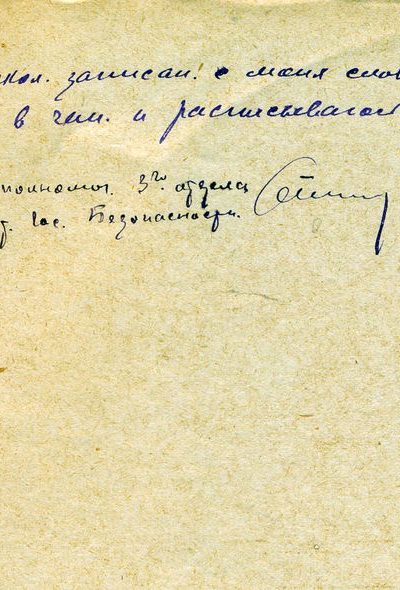 кол. записан. с моих слов
в чем. и расписываюсь
полномоч. 3го отдела
т. Гос. Безопасности.